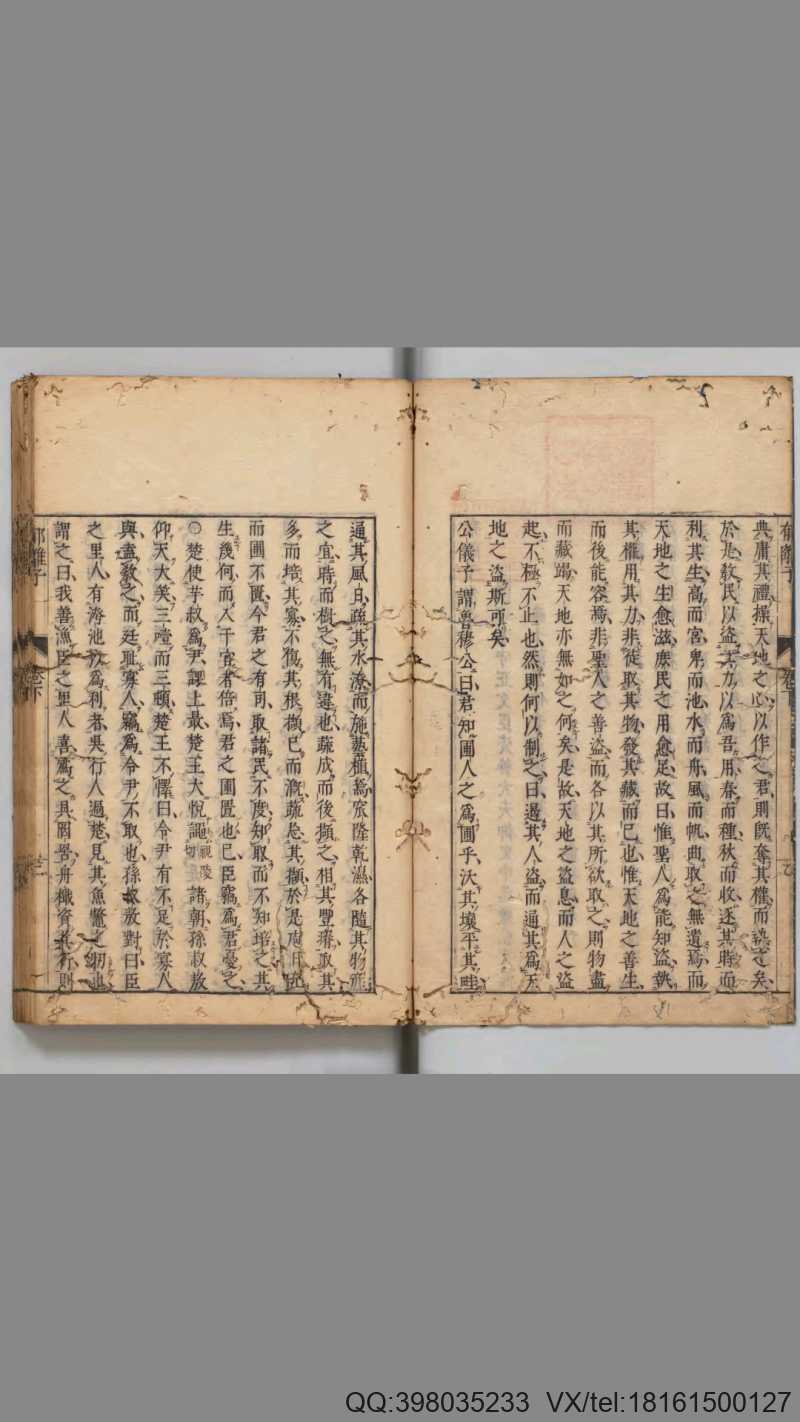 郁離子
典庸其禮操天地之心以作之君則既奪其權而執之矣
於是教民以盜其力以爲吾用春而種秋而收逐其時而
利其生高而宮卑而池水而舟風而帆曲取之無遺焉而
天地之生愈滋庶民之用愈足故曰惟聖人爲能知盜執
其權用其力非徒取其物發其藏而已也惟天地之善生
而後能容焉非聖人之善盜而各以其所欲取之則物盡
而藏竭天地亦無如之何矣是故天地之盜息而人之盜
起不極不止也然則何以制之曰遏其人盜而通其爲天
地之盜斯可矣
公儀子謂魯穆公曰君知圃人之爲圃乎沃其壤平其畦
通其風日疏其水潦而施藝植焉窊隆乾濕各隨其物產
之宜時而樹之無有違也蔬成而後擷之相其豐瘠取其
多而培其寡不傷其根擷已而溉蔬忘其擷於是庖日充
而圃不匱今君之有司取諸民不度知取而不知培之其
生幾何而入于官者倍焉君之圃匱也已臣竊爲君憂之
○楚使芋叔爲尹課上最楚王大悅譝視陵切諸朝孫叔敖
仰天大笑三噎而三頓楚王不懌曰令尹有不足於寡人
與盍教之而廷恥寡人竊爲令尹不取也孫叔敖對曰臣
之里人有洿池以爲利者吳行人過楚見其魚鼈之牣也
謂之曰我善漁臣之里人喜爲之具罔罟舟檝資其行則
郁離子 卷下
QQ:398035233 VX/tel:18161500127